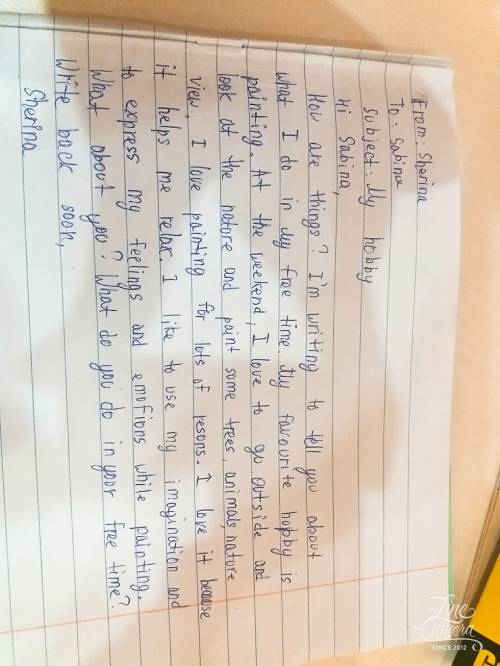 From: Sherina
To: Sabina
Subject: My hobby
Hi Sabina,
How are things? I'm writing to tell you about
what I do in my free time. My favourite hobby is
painting. At the weekend, I love to go outside and
look at the nature and paint some trees, animals, nature
view. I love painting for lots of resons. I love it because
it helps me relax. I like to use my imagination and
to express my feelings and emotions while painting.
What about you? What do you do in your free time?
Write back soon,
Sherina
Fine
Camera
SINCE 2012